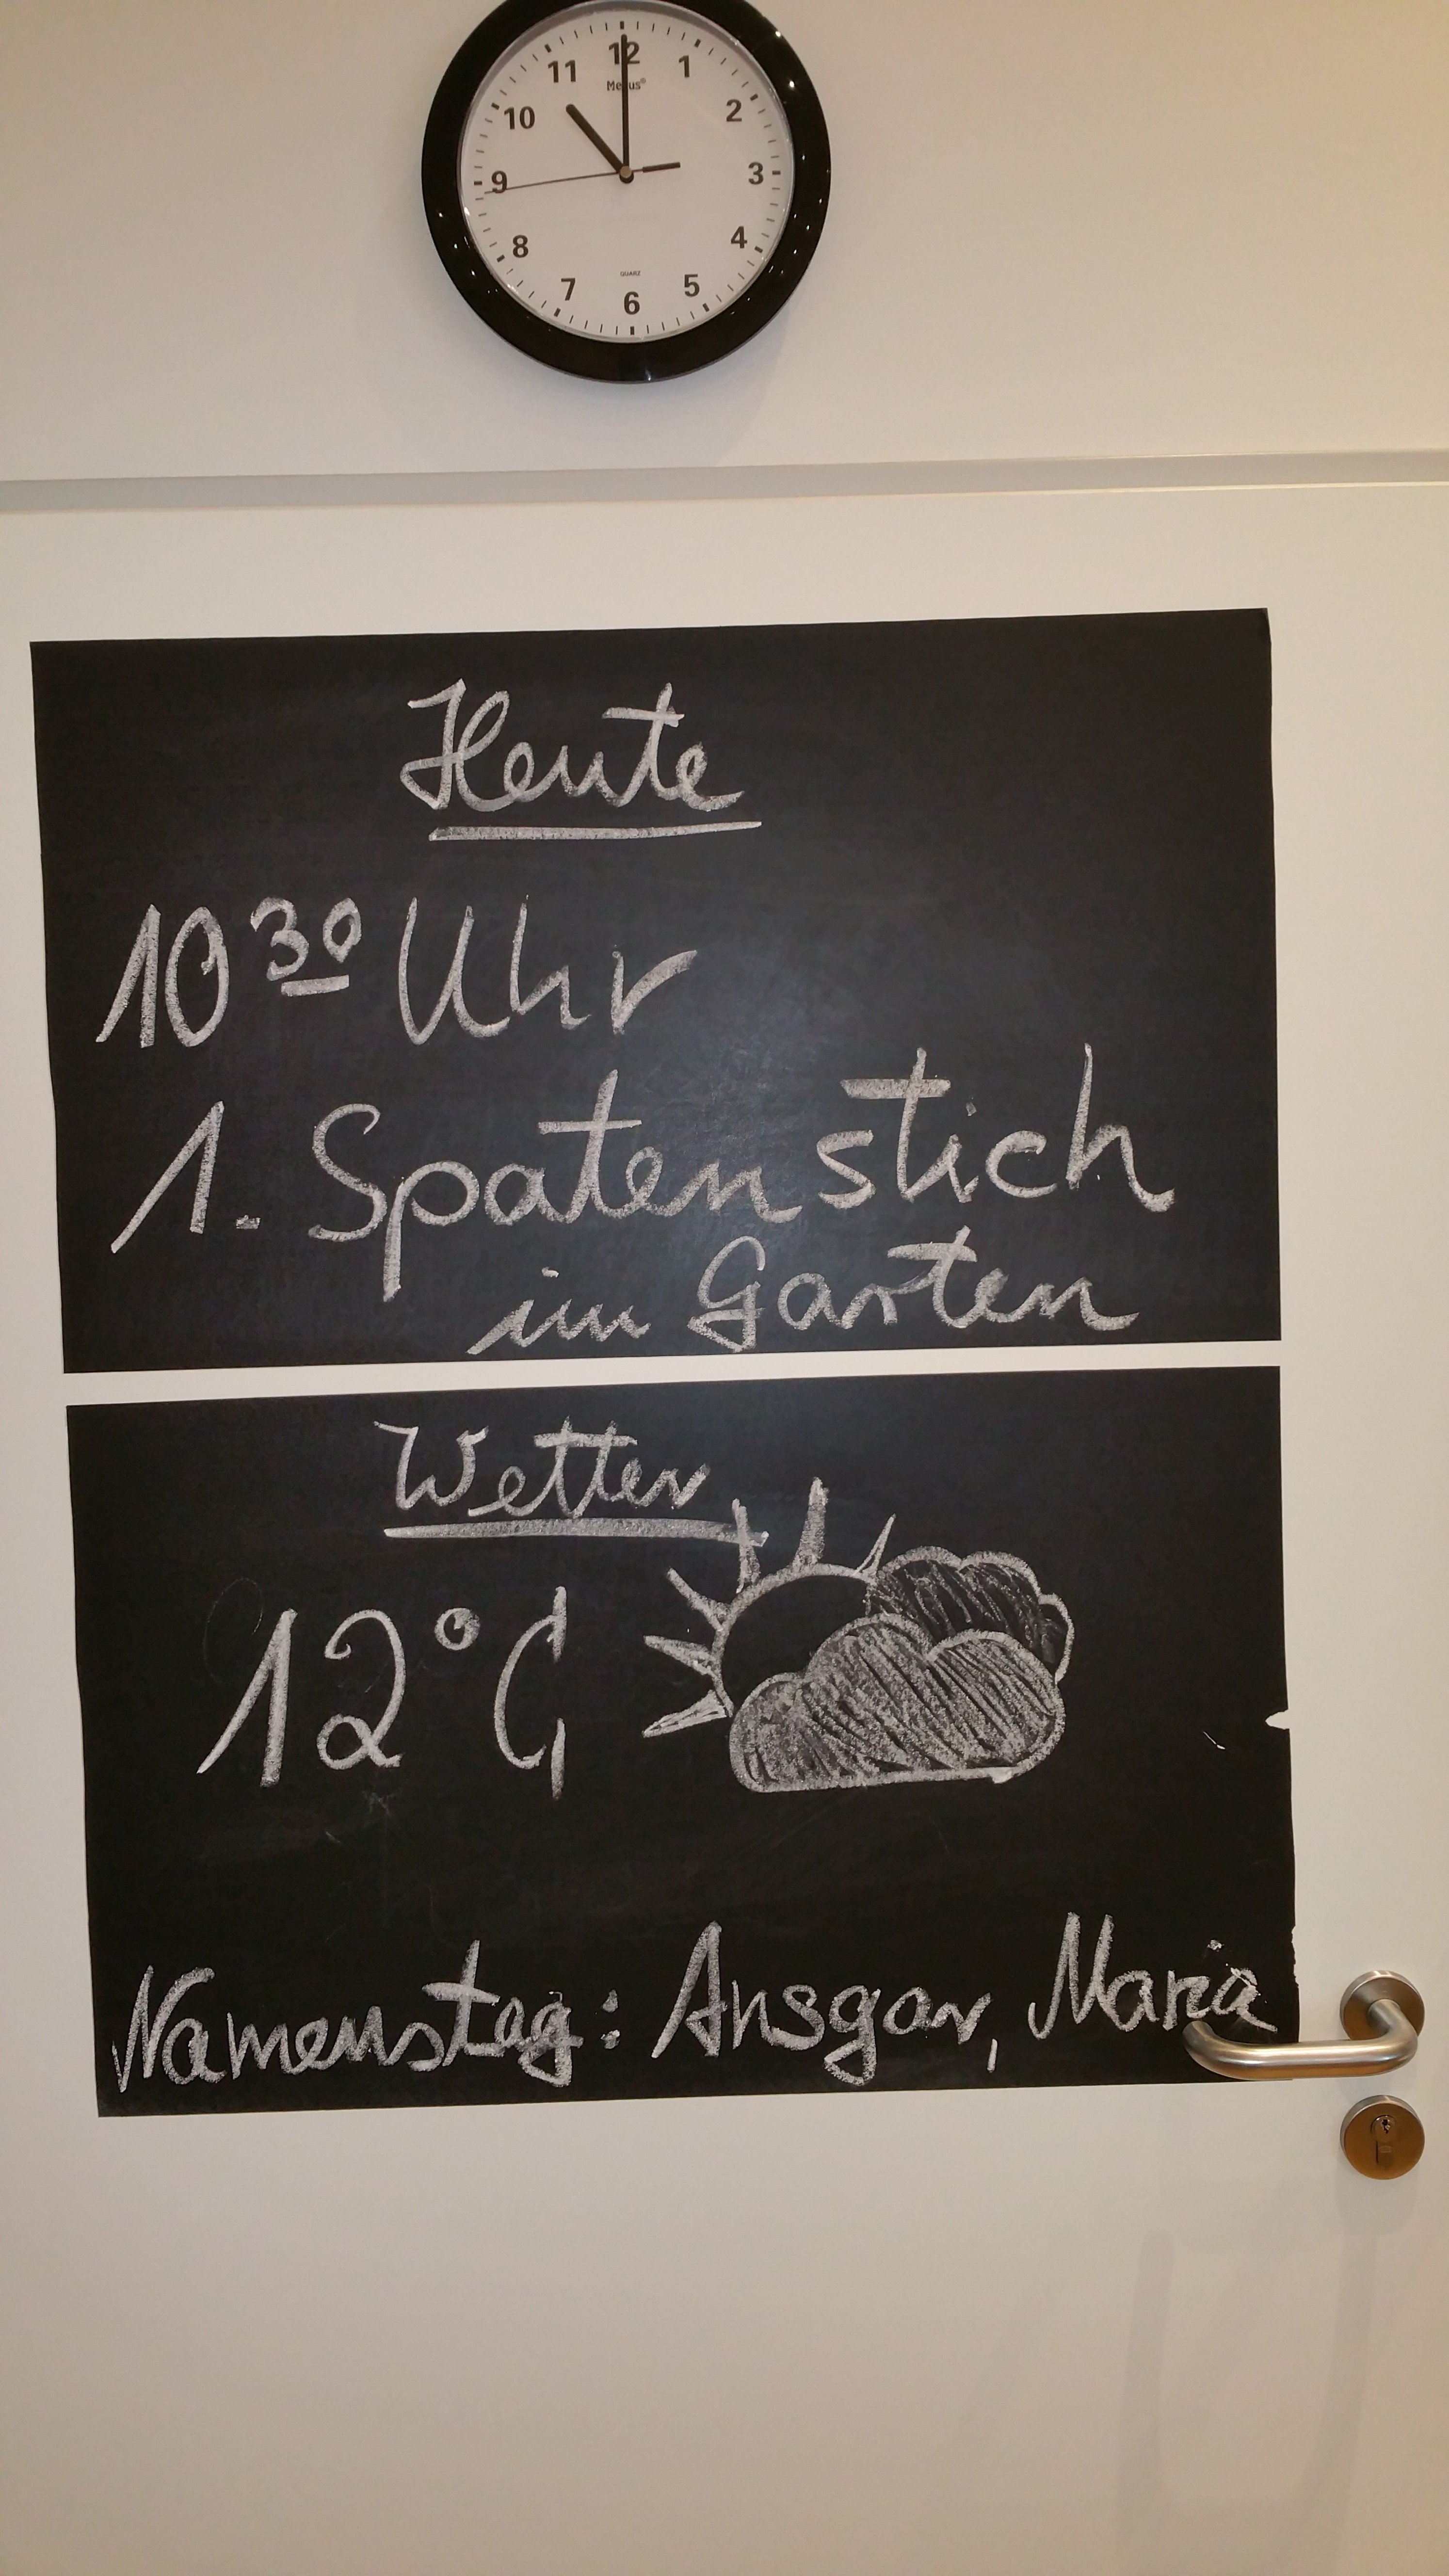 12
11
1
10
2
9
3
8
4
7
5
6
QUARZ
Heute
10³⁰ Uhr
1. Spatenstich
im Garten
Wetter
12°C
Namenstag: Ansgar, Maria